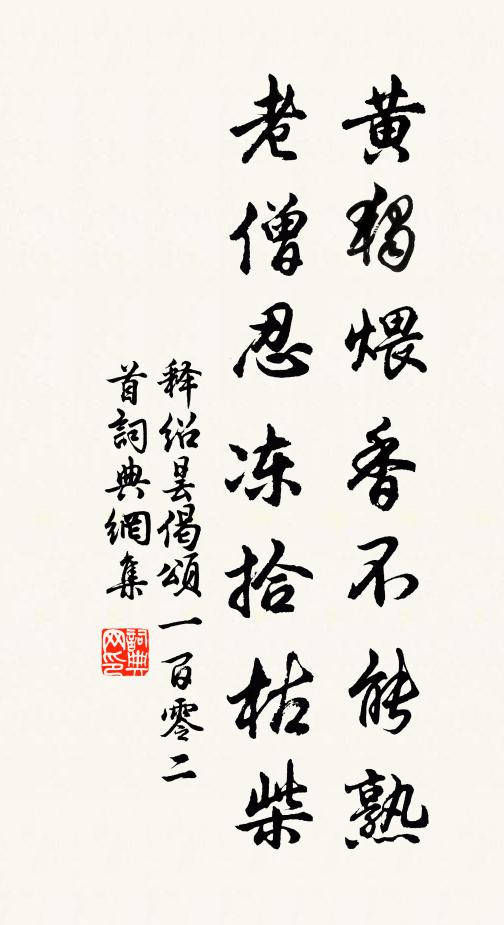 黄独煨香不能熟
老僧忍冻拾枯柴
释绍昙偈頌一百零二
首詞典網集
詞典
网印